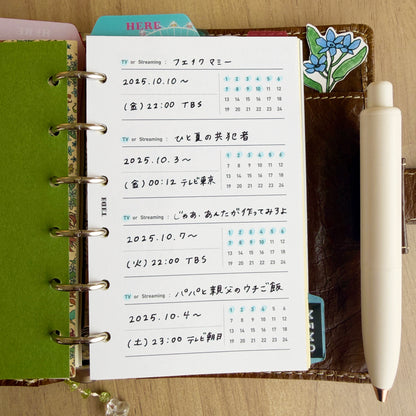 HERE
TV or Streaming : フェイクマミー
2025.10.10〜
(金)22:00 TBS
1 2 3 4 5 6
7 8 9 10 11 12
13 14 15 16 17 18
19 20 21 22 23 24
TV or Streaming : ひと夏の共犯者
2025.10.3〜
(金)00:12 テレビ東京
1 2 3 4 5 6
7 8 9 10 11 12
13 14 15 16 17 18
19 20 21 22 23 24
TV or Streaming : じゃあ、あんたが作ってみろよ
2025.10.7〜
(火)22:00 TBS
1 2 3 4 5 6
7 8 9 10 11 12
13 14 15 16 17 18
19 20 21 22 23 24
TV or Streaming : パパと親父のウチご飯
2025.10.4〜
(土)23:00 テレビ朝日
1 2 3 4 5 6
7 8 9 10 11 12
13 14 15 16 17 18
19 20 21 22 23 24
MEMO